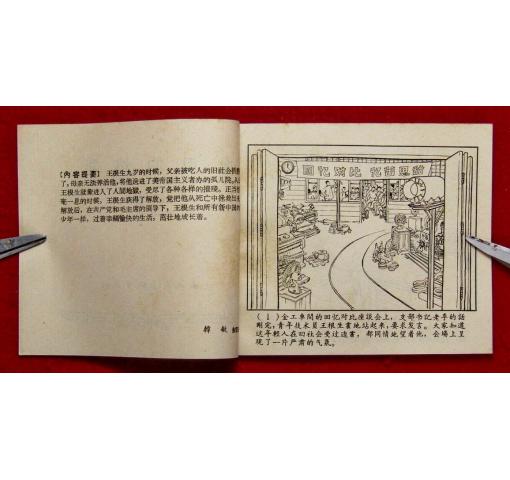 〔内容提要〕 王根生九岁的时候，父亲被吃人的旧社会折磨
了，母亲无法养活他，将他送进了美帝国主义者办的孤儿院，从
王根生就象进入了人间地狱，受尽了各种各样的摧残。正当他
奄一息的时候，王根生获得了解放，党把他从死亡中拯救出来
解放后，在共产党和毛主席的领导下，王根生和所有新中国的
少年一样，过着幸福愉快的生活，茁壮地成长着。
韓 敏
回忆对比
(1) 金工车間的回忆对比座談会上，支部书記老李的話
剛完，青年技术員王根生霍地站起来，要求发言。大家知道
这年輕人在旧社会受过迫害，都同情地望着他，会場上呈
現了一片严肃的气氛。